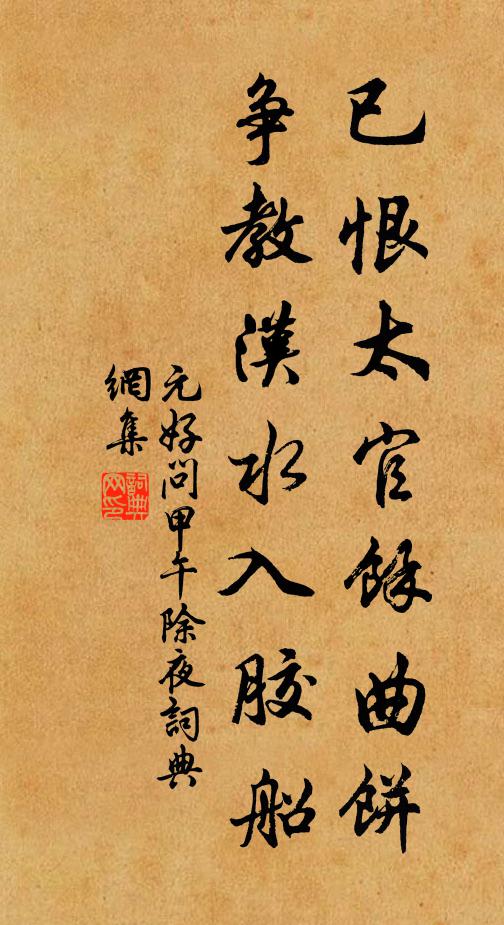 已恨太官餘曲餅
争教漢水入膠船
元好問甲午除夜詞典
網集
詞典網印